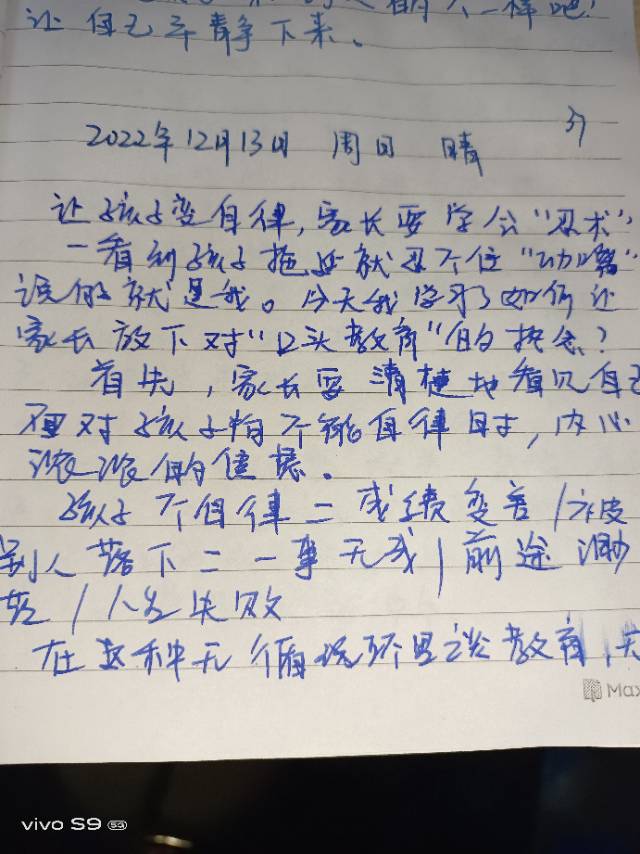 一样吧！
让自己平静下来。
2022年12月13日 周日 晴
让孩子变自律，家长要学会“忍术”
一看到孩子拖延就忍不住“叨叨”
说的就是我。今天我学习了如何让
家长放下对“口头教育”的执念？
首先，家长要清楚地看见自己
面对孩子的不能自律时，内心
滚滚的焦虑。
孩子不自律=成绩变差/被
别人落下=一事无成/前途渺
茫/人生失败
在这种无循环里谈教育，
Max
vivo S9